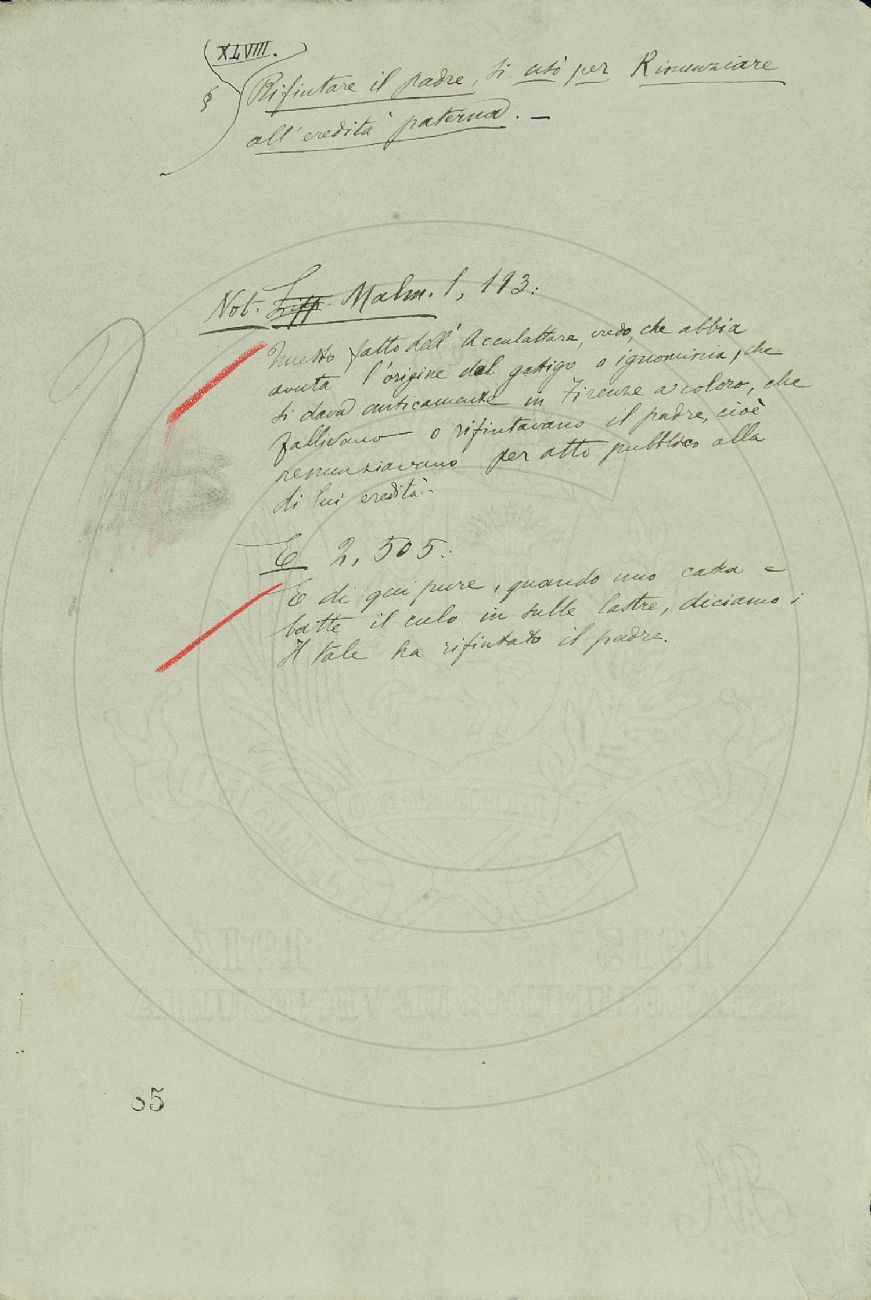 XLVIII.
§ Rifiutare il padre, si usò per Rinunziare
all'eredità paterna. —
Not. Malm. 1, 193:
Questo fatto dell'Acculattare, credo, che abbia
avuta l'origine dal gastigo o ignominia, che
si dava anticamente in Firenze a coloro, che
fallivano o rifiutavano il padre, cioè
renunziavano per atto pubblico alla
di lui eredità.
E 2, 505:
E di qui pure, quando uno casca e
batte il culo in sulle lastre, diciamo:
Il tale ha rifiutato il padre.
85